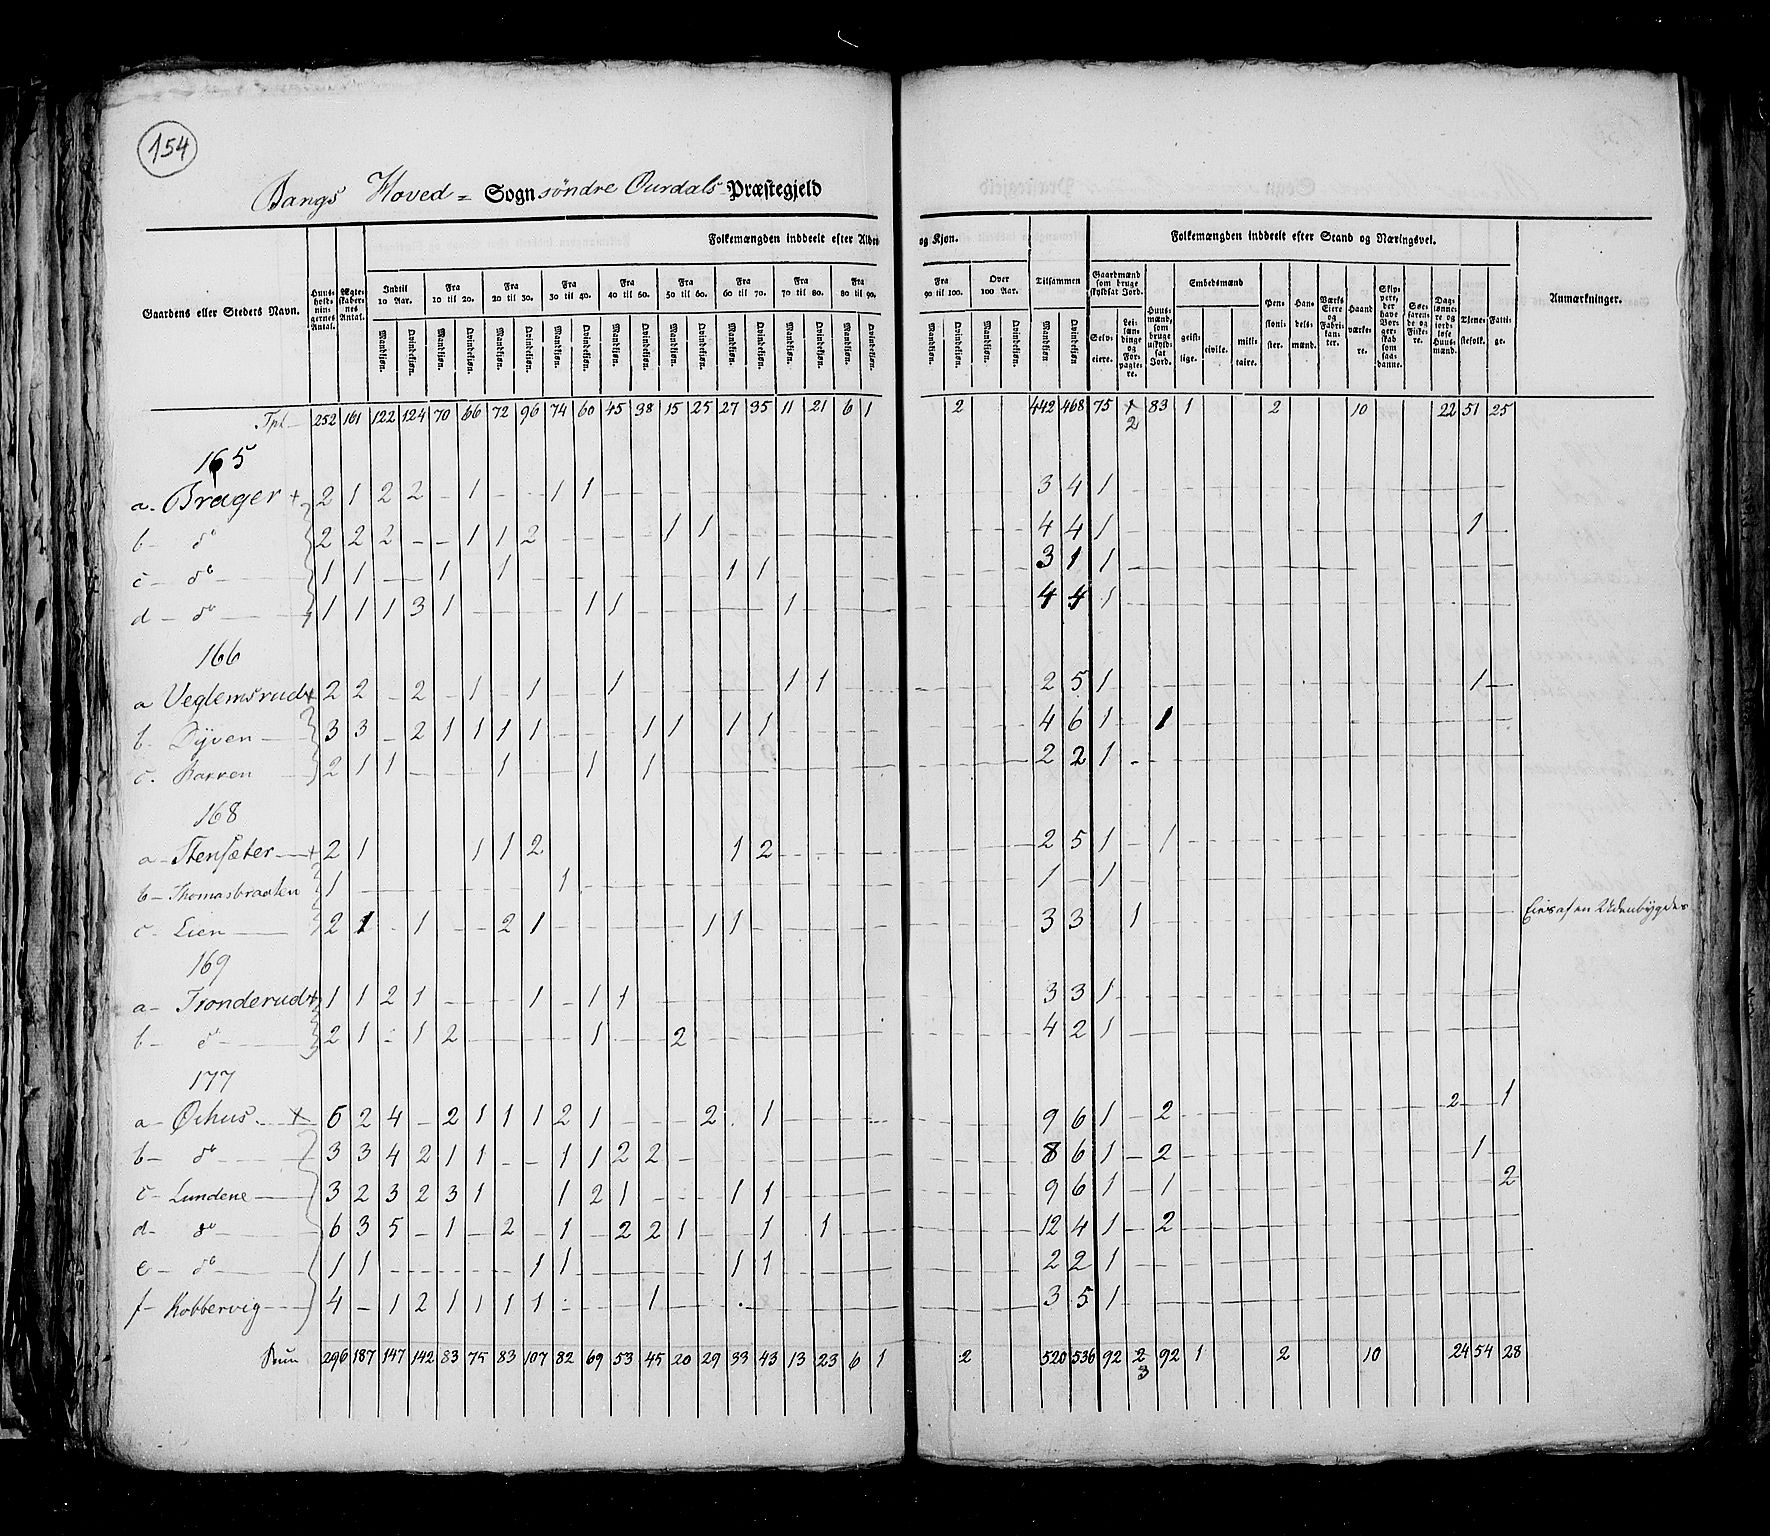 154
Bangs Hoved = Sogn søndre Ourdals Præstegjeld
Folkemængden inddeelt efter Alder og Kjøn.
Folkemængden inddeelt efter Stand og Næringsvei.
Gaardens eller Stedets Navn.
Huus-holdningernes Antal.
Ægteskabernes Antal.
Indtil 10 Aar.
Fra 10 til 20.
Fra 20 til 30.
Fra 30 til 40.
Fra 40 til 50.
Fra 50 til 60.
Fra 60 til 70.
Fra 70 til 80.
Fra 80 til 90.
Fra 90 til 100.
Over 100 Aar.
Tilsammen
Mandkjøn. Qvindekjøn.
Gaardmænd som bruge skyldsat Jord.
Selveiere.
Leilændinge og Forpagtere.
Huusmænd, som bruge uskyldsat Jord.
Embedsmænd
geistlige.
civile.
militaire.
Pensionister.
Handelsmænd.
Værks Eiere og Fabrikanter.
Haandværkere.
Skippere, der have Borgerskab som saadanne.
Søefarende og Fiskere.
Daglønnere og jordløse Huusmænd.
Tjenestefolk.
Fattige.
Anmærkninger.
Tpt 252 161 122 124 70 66 72 96 74 60 45 38 15 25 27 35 11 21 6 1 2 442 468 75 2 83 1 2 10 22 51 25
165
a - Brager + 2 1 2 2 - 1 - - 1 1 - 3 4 1
b - do 2 2 2 - - 1 1 2 - - - - 1 1 - 4 4 1 - 1
c - do 1 1 - - 1 - 1 - 1 1 - 3 1 1
d - do 1 1 1 3 1 - 1 1 - 1 - 4 4 1
166
a Veglemsrud + 2 2 - 2 - 1 - 1 - - 1 - 1 1 - 2 5 1 - 1
b - Dyven 3 3 - 2 1 1 1 1 - - - 1 1 - 1 1 - 4 6 1 1
c - Barren 2 1 1 - - - 1 - - 1 - 1 - 2 2 1
168
a - Stensæter + 2 1 1 1 2 1 2 - 2 5 1 - 1
b - Thomasbraaten 1 - 1 - 1 - 1
c - Lien 2 1 - 1 - - 2 1 - 1 1 - 3 3 1 Eies af en Udenbygdes
169
a - Tronderud + 1 1 2 1 - - - 1 - 1 1 - 3 3 1
b - do 2 1 - 1 2 - 1 - - 2 - 4 2 1
177
a - Øihus + 6 2 4 - 2 1 1 1 2 1 - - - 2 - 1 - 9 6 1 - 2 2 - 1
b - do 3 3 4 2 1 1 - - 1 1 2 2 - 8 6 1 - 2 - 1
c - Lundene 3 2 3 2 3 1 1 2 1 - - - 1 1 - 9 6 1 - 1 - 2
d - do 6 3 5 - 1 - 2 - 1 - 2 2 1 - - 1 - 1 - 12 4 1 - 2
e - do 1 1 - 1 1 - 1 1 - 2 2 1
f - Kobbervig 4 - 1 2 1 1 1 1 - - - 1 - 3 5 1
296 187 147 142 83 75 83 107 82 69 53 45 20 29 33 43 13 23 6 1 2 520 536 92 3 92 1 2 10 24 54 28